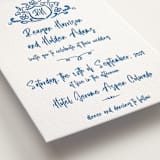 RH
Reagan Harrison
and Holden Adams
invite you to celebrate at their wedding
Saturday the fifth of September, 2009
at five in the afternoon
Hotel Jerome Aspen Colorado
dinner and dancing to follow